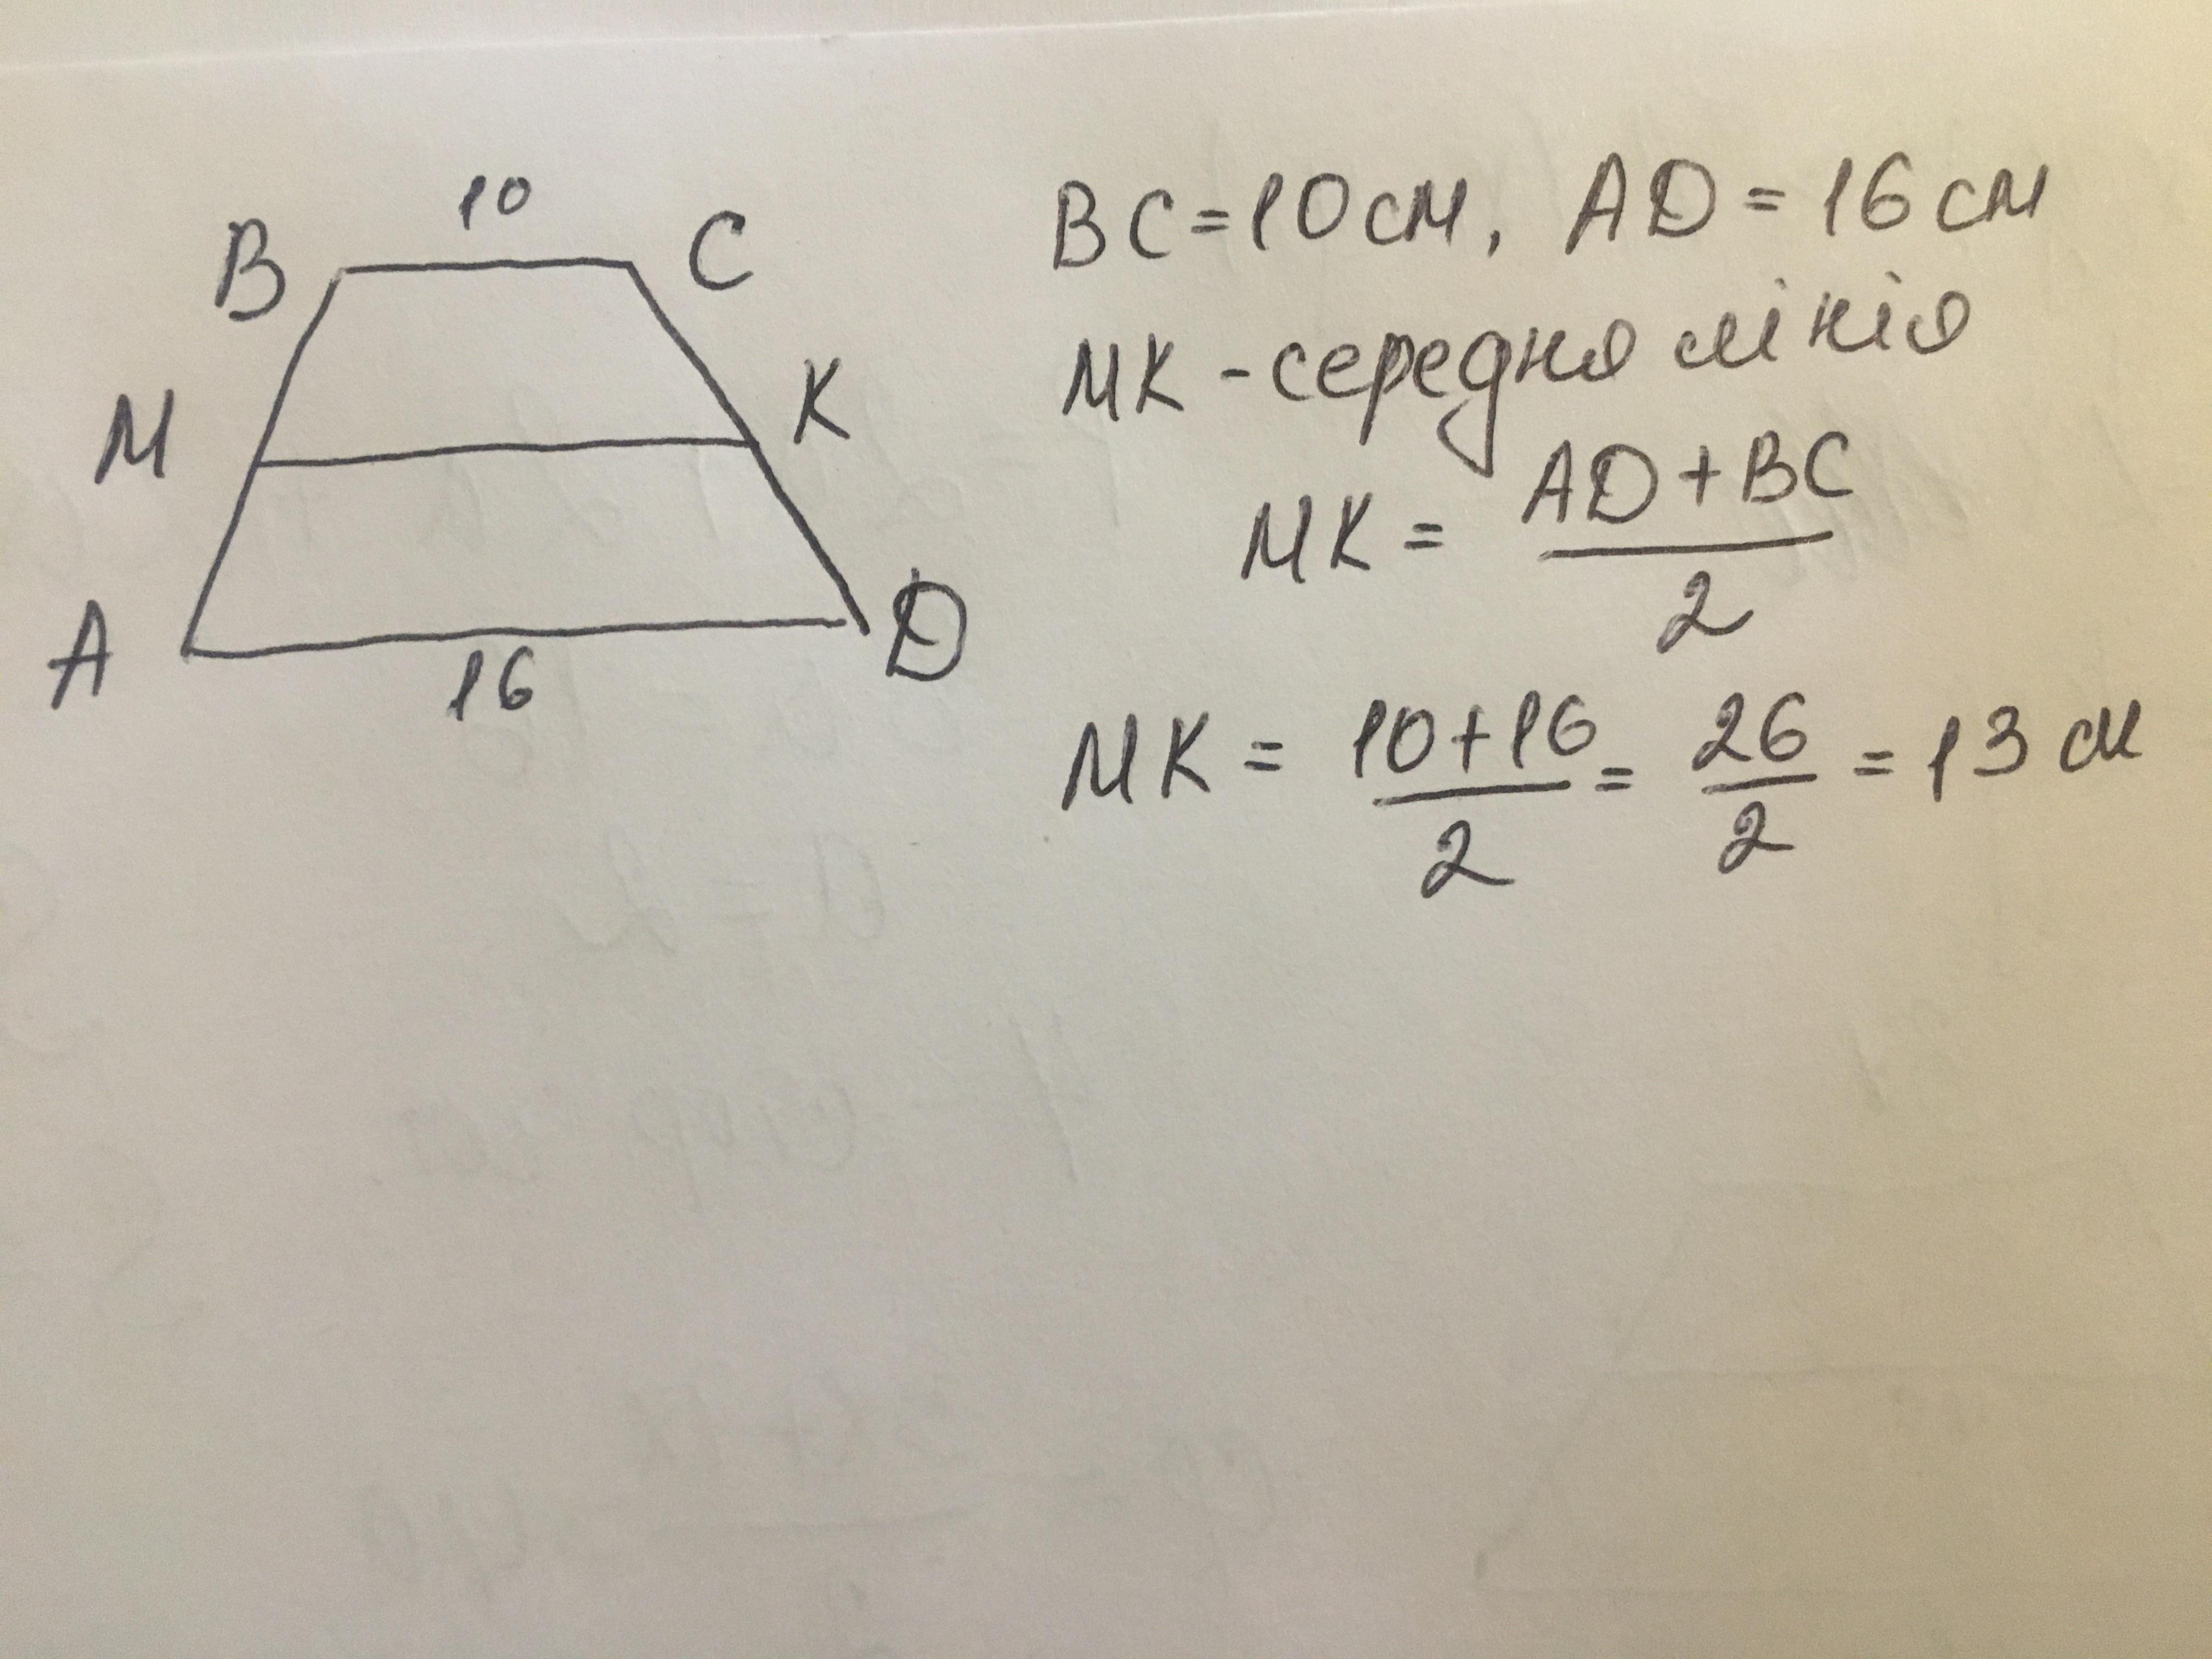 10
B
C
M
K
A
D
16
BC=10см, AD=16см
MK-середня лінія
MK = AD+BC
2
MK = 10+16 = 26 = 13 см
2 2